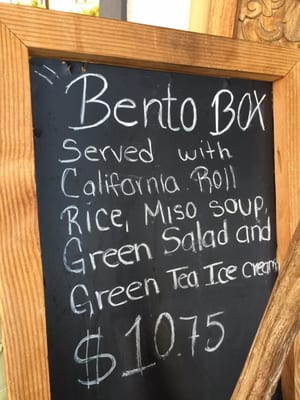 Bento BOX
Served with
California Roll
Rice, Miso soup,
Green Salad and
Green Tea Ice cream
$10.75